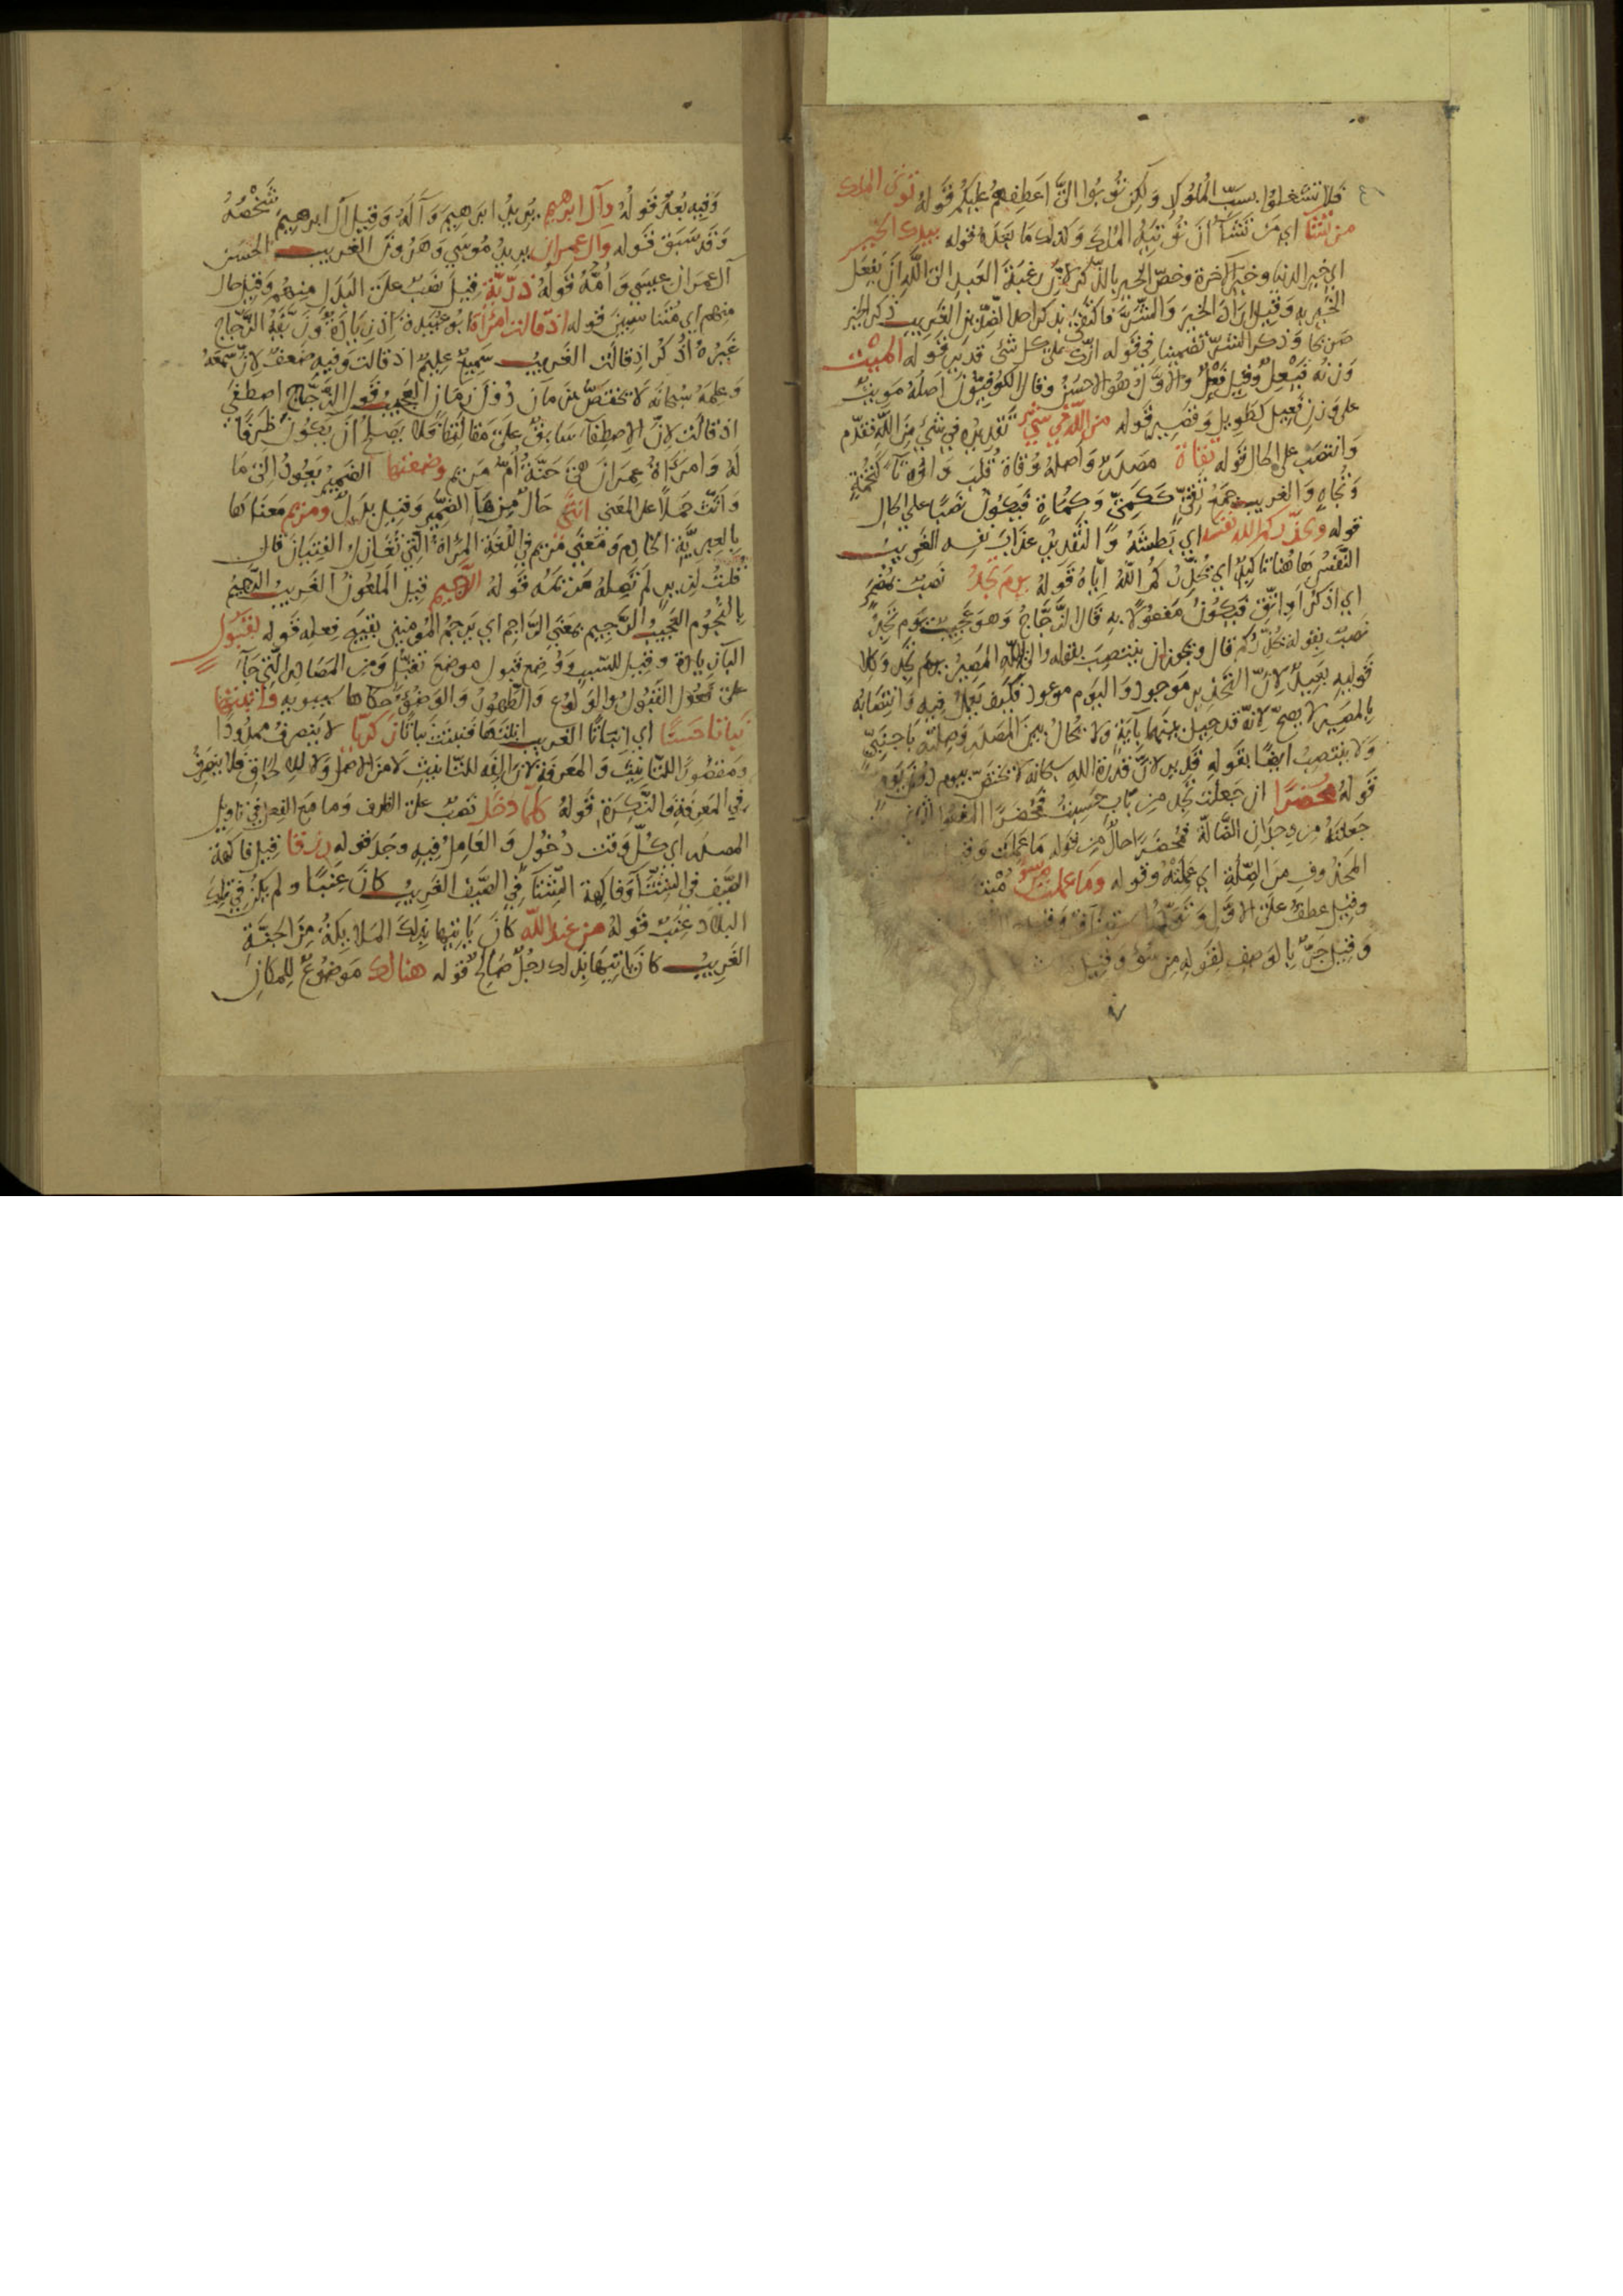 فلا تشغلوا بسبّ الملوك ولكن توبوا اليّ اعطفهم عليكم قوله تؤتى الملك
من تشآ اي من تشآ ان تؤتيه الملك وكذلك ما بعده قوله بيدك الخير
اي خير الدنيا وخير الآخرة وخصّ الخير بالذكر لانّ رغبة العبد الى اللّه ان يفعل
الخير به وقيل اراد الخير والشرّ فاكتفى بذكر احد الضدّين الغريب ذكر الخير
صريحا وذكر الشرّ تضمينا في قوله انّك على كل شئ قدير قوله الميّت
وزنه فيعل وقيل فعل والاوّل هو الاحسن وقال الكوفيّون اصله مويت
على وزن فعيل كطويل وقصير قوله من اللّه في شئ تقديره في شئ من اللّه فقدّم
وانتصب على الحال قوله تقاة مصدر واصله وقاة قلب واوه تآ كتخمة
وتجاه والغريب جمع تقيّ ككميّ وكماة فيكون نصبا على الحال
قوله ويحذّركم اللّه نفسه اي بطشه والتقدير عذاب نفسه الغريب
النفس هاهنا تاكيد اي يحذّركم اللّه ايّاه قوله يوم تجد نصب بمضمر
اي اذكر او اتّق فيكون مفعولا به قال الزّجّاج وهو عجيب يوم تجد
نصب بقوله يحذّركم قال ويجوز ان ينتصب بقوله والى اللّه المصير يوم تجد وكلا
قوليه بعيد لانّ التحذير موجود واليوم موعود فكيف يعمل فيه وانتصابه
بالمصير لا يصحّ لانّه قد حيل بينهما بآية ولا يحال بين المصدر وصلته باجنبيّ
ولا ينتصب ايضا بقوله قدير لانّ قدرة اللّه سبحانه لا تختصّ بيوم دون يوم
قوله محضرا ان جعلت تجد من باب حسبت فمحضرا المفعول الثاني
جعلته من وجدان الضّالّة فمحضرا حال من قوله ما عملت
المحذوف من الصّلة اي عملته وقوله وما عملت من سوء
وقيل عطف على الاوّل
وقيل جرّ بالوصف لقوله من سوء وقيل
وفيه بعد قوله وآل ابرهيم يريد ابرهيم وآله وقيل آل ابرهيم شخصه
وقد سبق قوله وآل عمران يريد موسى وهرون الغريب الحسن
آل عمران عيسى وامّه قوله ذرّيّة قيل نصب على البدل منهم وقيل حال
منهم اي متناسبين قوله اذ قالت امرأة ابو عبيدة اذ زيادة وزيّفه الزّجّاج
غيره اذكر اذ قالت الغريب سميع عليم اذ قالت وفيه ضعف لانّ سمعه
وعلمه سبحانه لا يختصّ بزمان دون زمان العجيب قول الزّجّاج اصطفى
اذ قالت لانّ الاصطفآ سابق على مقالتها ولا يصلح ان يكون ظرفا
له وامرأة عمران هي حنّة امّ مريم وضعتها الضمير يعود الى ما
وانّث حملا على المعنى انثى حال من هآ الضمير وقيل بدل ومريم معناها
بالعبريّة الخادم ومعنى مريم في اللغة المرأة التي تغازل الفتيان قال
قلت لزير لم تصله مريمه قوله الرّجيم قيل الملعون الغريب الرّجيم
بالنجوم العجيب الرّجيم بمعنى الرّاجم اي يرجم المؤمنين بقبيح فعله قوله بقبول
البآ زيادة وقيل للسّبب ووضع قبول موضع تقبّل ومن المصادر الّتي جآ
على فعول القبول والولوع والطهور والوضوء حكاها سيبويه وانبتها
نباتا حسنا اي انباتا الغريب انبتها فنبتت نباتا زكريّا لا ينصرف ممدودا
ومقصورا للتانيث والمعرفة لانّ الفه للتانيث لا من الاصل ولا للالحاق فلا ينصرف
في المعرفة والنّكرة قوله كلّما دخل نصب على الظرف وما مع الفعل في تاويل
المصدر اي كلّ وقت دخول والعامل فيه وجد قوله رزقا قيل فاكهة
الصّيف في الشتآ وفاكهة الشتآ في الصّيف الغريب كان عنبا ولم يكن في تلك
البلاد عنب قوله من عند اللّه كان ياتيها بذلك الملايكة من الجنّة
الغريب كان ياتيها بذلك رجل صالح قوله هنالك موضوع للمكان